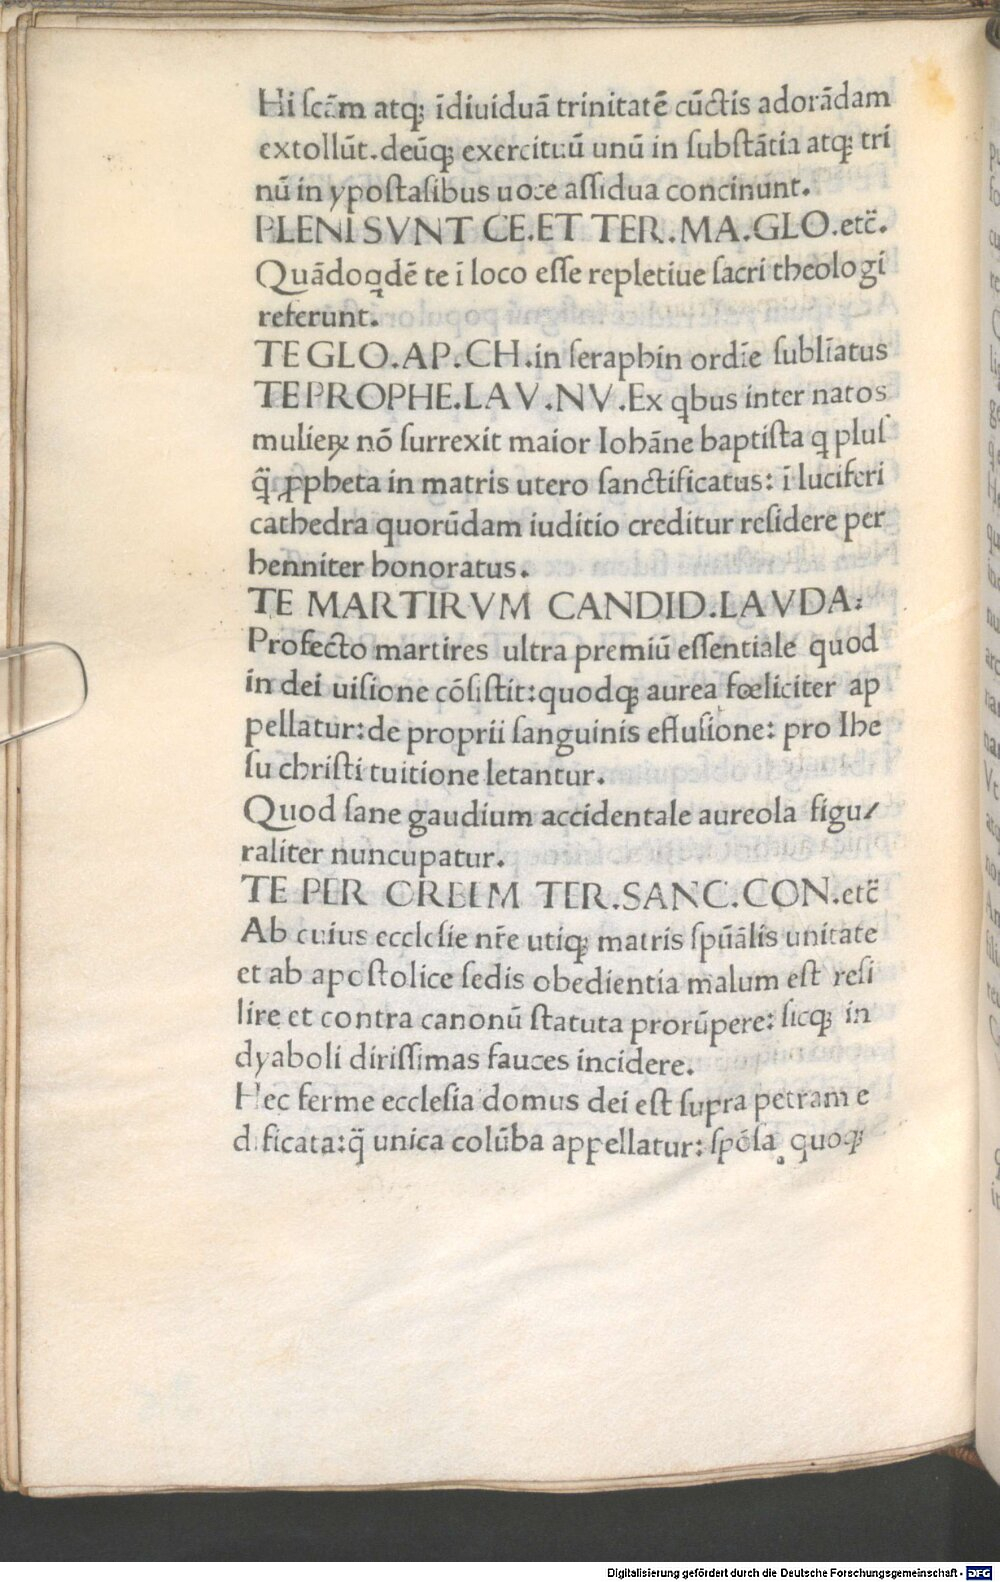 Hi ſcām atqꝫ īdiuiduā trinitatē cūctis adorādam
extollūt.deūqꝫ exercituū unū in ſubſtātia atqꝫ tri
nū in ypoſtaſibus uoce aſſidua concinunt.
PLENI SVNT CE.ET TER.MA.GLO.etc̄.
Quādoqdē te ī loco eſſe repletiue ſacri theologi
referunt.
TE GLO.AP.CH.in ſeraphin ordīe ſublīatus
TE PROPHE.LAV.NV.Ex qbus inter natos
mulieꝝ nō ſurrexit maior Iohāne baptiſta q pluſ
q̄ ꝓpheta in matris utero ſanctificatus: ī luciferi
cathedra quorūdam iuditio creditur reſidere per
henniter honoratus.
TE MARTIRVM CANDID.LAVDA:
Profecto martires ultra premiū eſſentiale quod
in dei uiſione cōſiſtit:quodqꝫ aurea fœliciter ap
pellatur:de proprii ſanguinis effuſione: pro Ihe
ſu chriſti tuitione letantur.
Quod ſane gaudium accidentale aureola figu/
raliter nuncupatur.
TE PER ORBEM TER.SANC.CON.etc̄
Ab cuius eccleſie nr̄e utiqꝫ matris ſpūalis unitate
et ab apoſtolice ſedis obedientia malum eſt reſi
lire et contra canonū ſtatuta prorūpere: ſicqꝫ in
dyaboli diriſſimas fauces incidere.
Hec ferme eccleſia domus dei eſt ſupra petram e
dificata:q̄ unica colūba appellatur: ſpōſa quoqꝫ
Digitalisierung gefördert durch die Deutsche Forschungsgemeinschaft - DFG